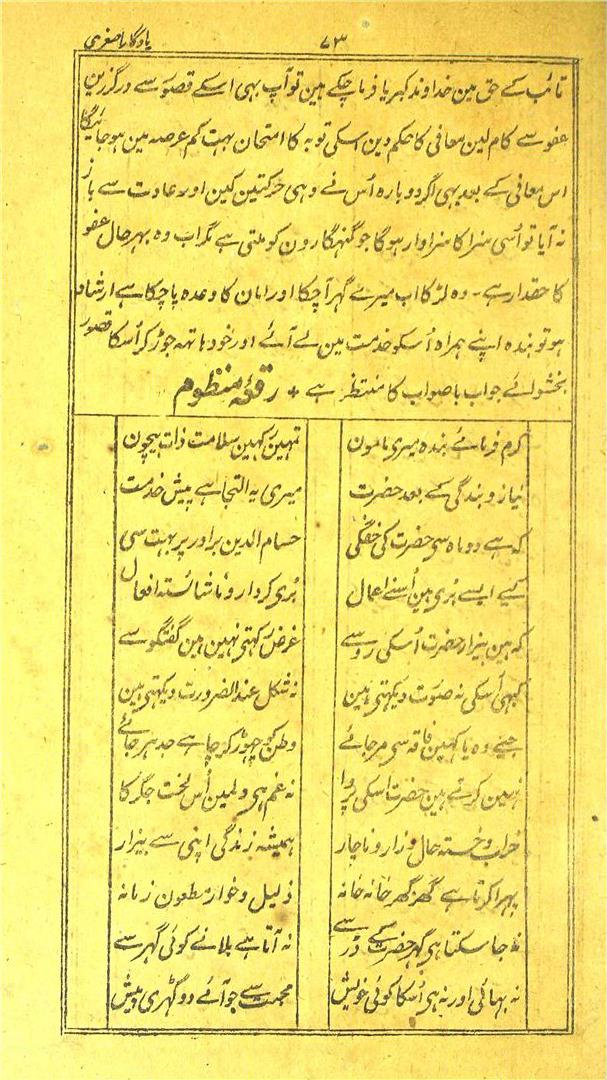 ۷۳ یادگار اصغری
تائب کے حق مین خداوند کبریا فرما چکے ہین تو آپ بہی اسکے قصور سے درگزرین
عفو سے کام لین معافی کا حکم دین اسکی توبہ کا امتحان بہت کم عرصہ مین ہو جائیگا
اس معافی کے بعد بہی اگر دوبارہ اُس نے وہی حرکتین کین اور عادت سے باز
نہ آیا تو اُسی سزا کا سزاوار ہوگا جو گنہگارون کو ملتی ہے مگر اب وہ بہر حال عفو
کا حقدار ہے ۔ وہ لڑکا اب میرے گہر آچکا اور امان کا وعدہ پا چکا ہے ارشاد
ہو تو بندہ اپنے ہمراہ اُسکو خدمت مین لے آئے اور خود ہاتہہ جوڑ کر اُسکا قصور
بخشوائے جواب باصواب کا منتظر ہے + رقعۂ منظوم
کرم فرمائے بندہ میری مامون تمہین رکہین سلامت ذات بیچون
نیاز و بندگی کے بعد حضرت میری یہ التجا ہے پیش خدمت
کہ ہے دو ماہ سی حضرت کی خفگی حسام الدین برادر پر بہت سی
کیے ایسے بُری ہین اُسنے اعمال بُری کردار و ناشائستہ افعال
کہ ہین بیزار حضرت اُسکی رو سے غرض رکہتی نہین ہین گفتگو سے
کبہی اُسکی نہ صورت دیکہتی ہین نہ شکل عند الضرورت دیکہتی ہین
جیئے وہ یا کہین فاقہ سی مر جائے وطن کو چہوڑ کر چاہے جدہر جائے
نہین کرتے ہین حضرت اسکی پروا نہ غم ہی دلمین اُس لخت جگر کا
خراب و خستہ حال و زار و ناچار ہمیشہ زندگی اپنی سے بیزار
پہرا کرتا ہے گھر گھر خانہ خانہ ذلیل و خوار مطعون زمانہ
نہ جا سکتا ہی گہر حضرت کے ڈر سے نہ آتا ہے بلانے کوئی گہر سے
نہ بہائی اور نہ ہی اُسکا کوئی خویش محبت سے جو آئے دو گہڑی پیش